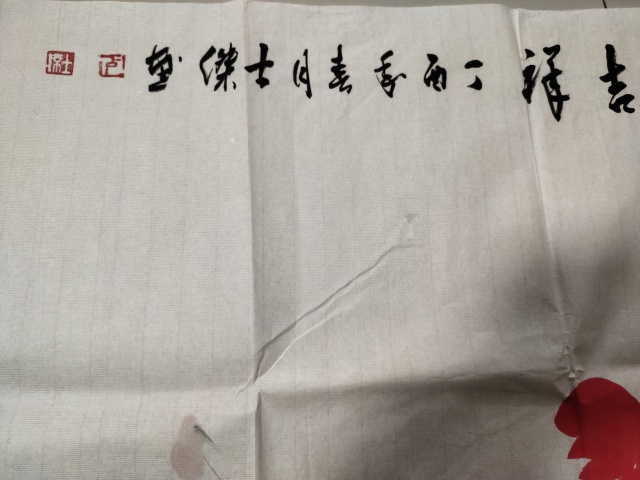 吉祥 丁酉年春月士傑畫